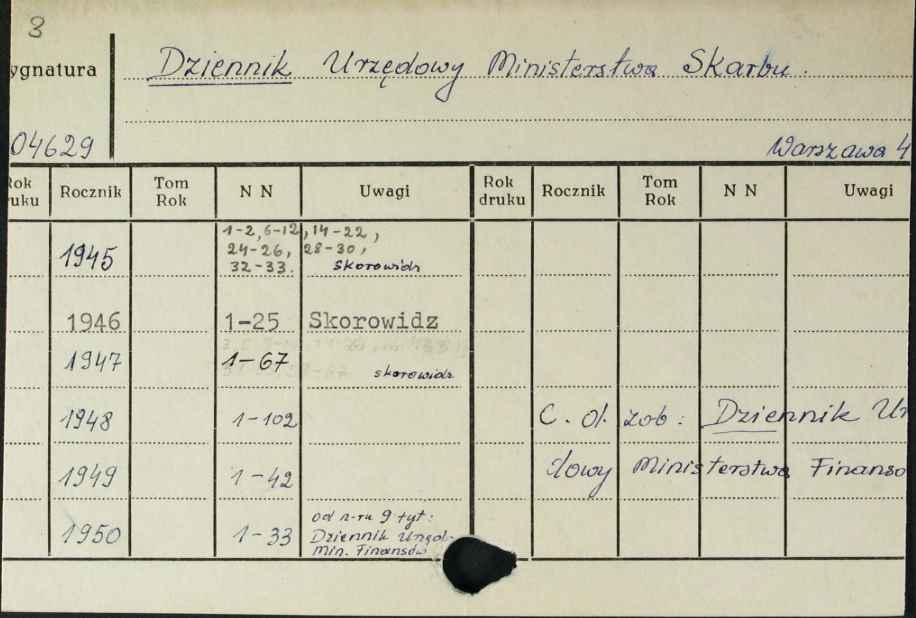 3
ygnatura
Dziennik Urzędowy Ministerstwa Skarbu.
04629
Warszawa 4
Rok ruku Rocznik Tom Rok N N Uwagi Rok druku Rocznik Tom Rok N N Uwagi
1945 1-2, 6-12, 14-22,
24-26, 28-30,
32-33. Skorowidz
1946 1-25 Skorowidz
1947 1-67 skorowidz
1948 1-102 C. d. zob: Dziennik Ur
1949 1-42 dowy Ministerstwa Finanso
od n-ru 9 tyt:
1950 1-33 Dziennik Urzęd.
Min. Finansów